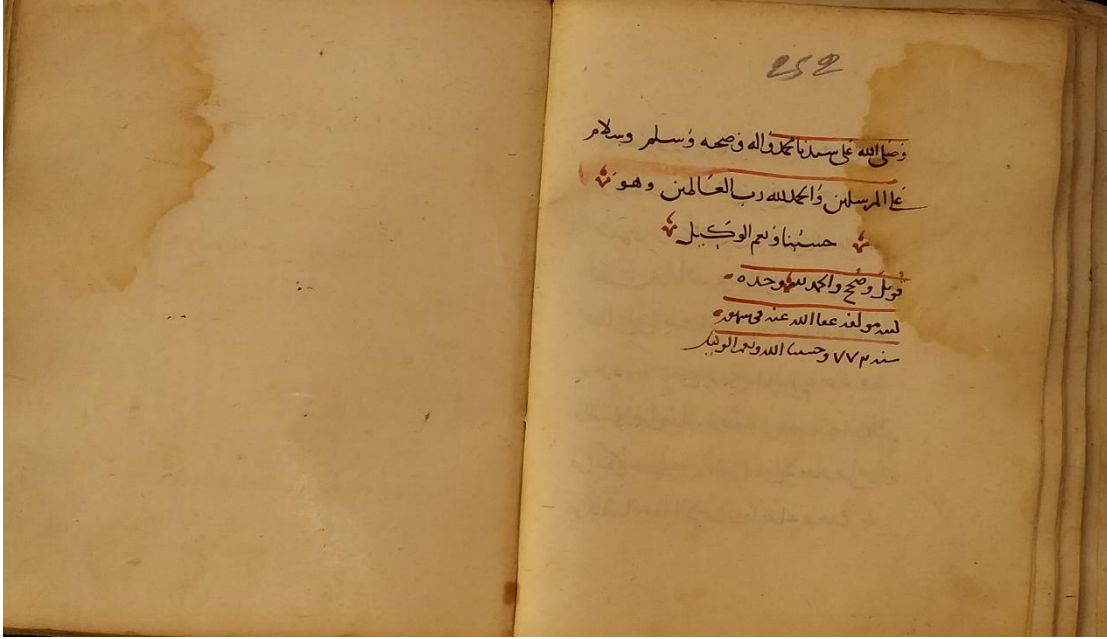 252
وصلى الله على سيدنا محمد واله وصحبه وسلم وسلام
على المرسلين والحمد لله رب العالمين وهو
حسبنا ونعم الوكيل
قوبل وصح والحمد لله وحده
مولفه عفا الله عنه في شهور
سنة ٧٧٣ وحسبنا الله ونعم الوكيل